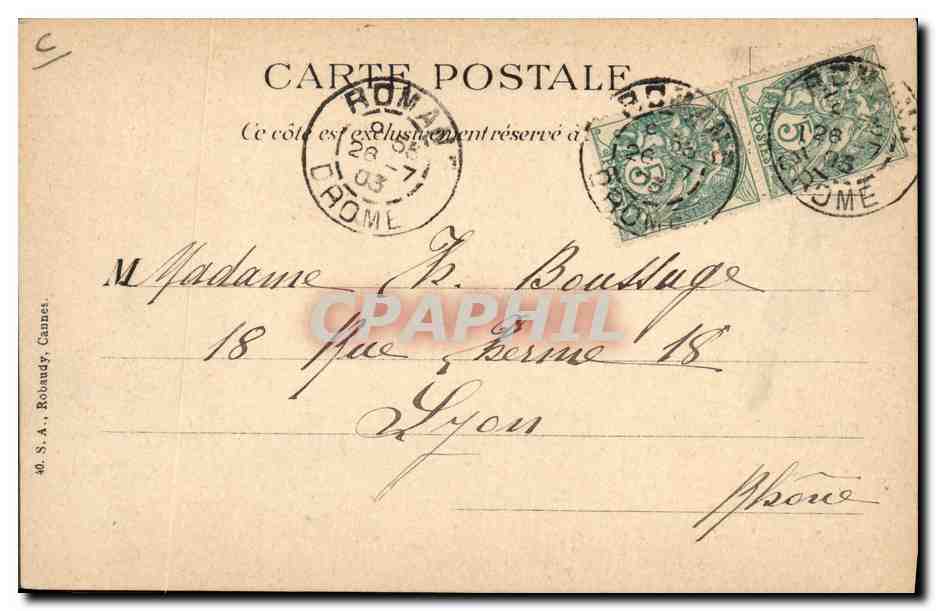 C
CARTE POSTALE
Ce côté est exclusivement réservé à
ROMANS
8 55
26 -7
03
DROME
ROMANS
8 55
26 -7
03
DROME
5
POSTES
5
26 -7
03
DROME
M Madame Th. Boussuge
18 Rue Therme 18
Lyon
Rhône
40. S. A., Robaudy, Cannes.
CPAPHIL